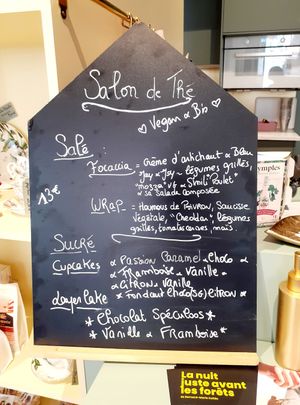 Salon de Thé
Vegan & Bio
Salé
Focaccia = Crème d'artichaut &
légumes grillés,
"mozza" VG & Simili "Poulet"
& sa Salade composée
13€
WRap = Houmous de Poivron, Saucisse
Végétale, "Cheddar", légumes
grillés, tomates cerises, maïs.
Sucré
Cupcakes & Passion Caramel & Choco &
& Framboise & Vanille
& Citron & Vanille
Layer Cake & Fondant Choco(SG) Citron &
* Chocolat Spéculoos *
* Vanille & Framboise *
La nuit
juste avant
les forêts